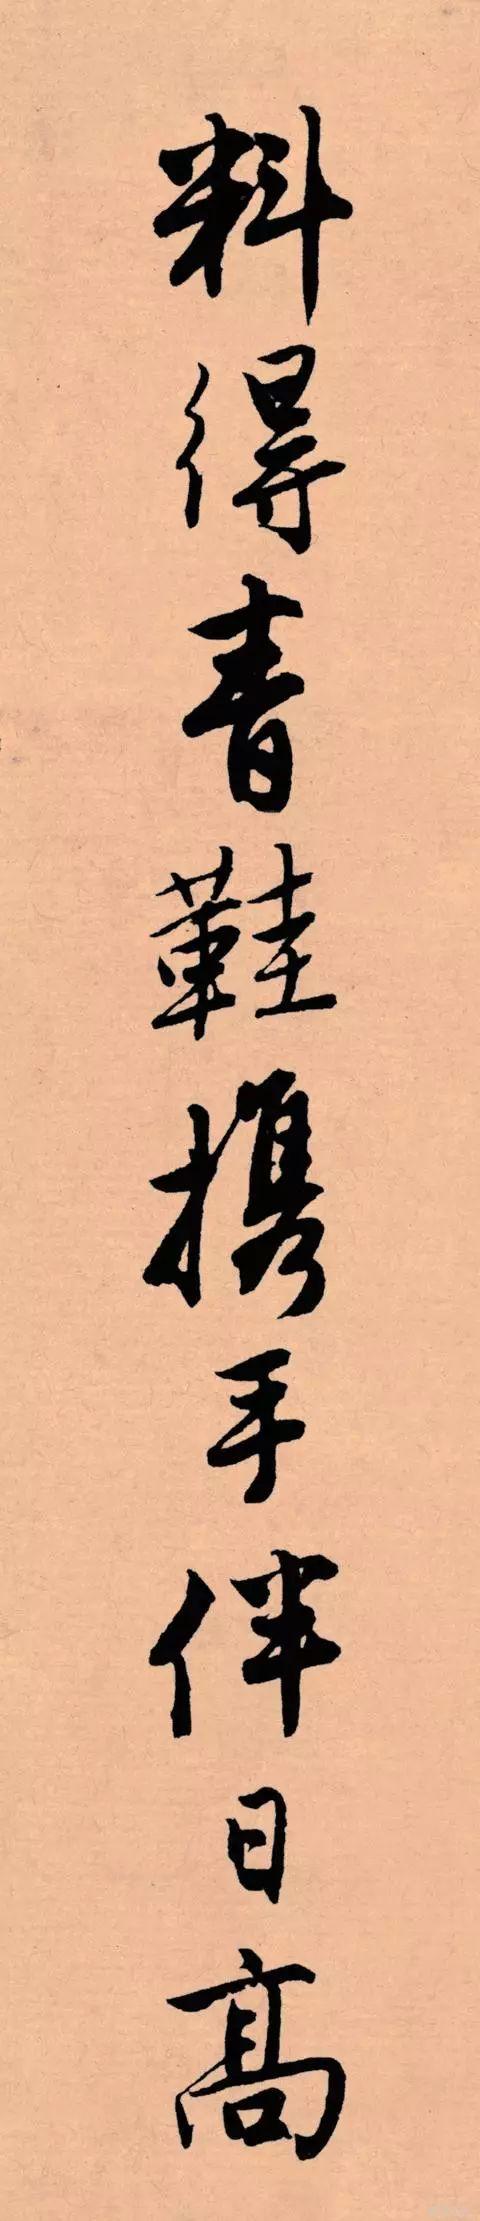 料得青鞋携手伴日高